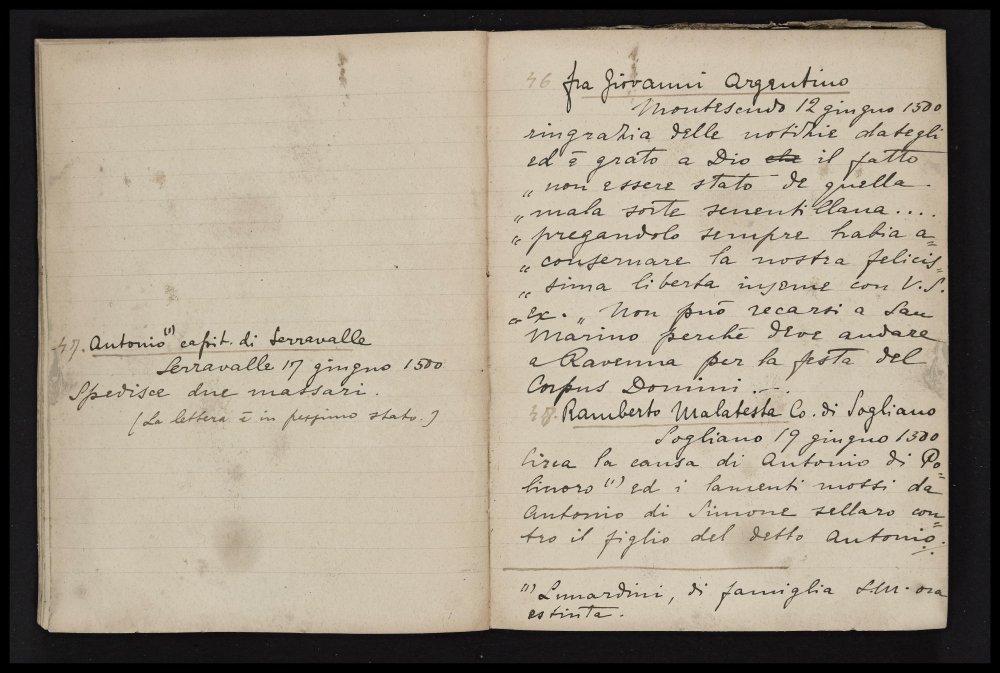 47. Antonio (1) capit. di Serravalle
Serravalle 17 giugno 1500
Spedisce due massari.
(La lettera è in pessimo stato.)
46 fra Giovanni Argentino
Montescudo 12 giugno 1500
ringrazia delle notizie dategli
ed è grato a Dio che il fatto
„ non essere stato de quella
„ mala sorte senentillana....
„ pregandolo sempre habia a=
„ conservare la nostra felicis=
„ sima liberta inseme con V. S.
„ ex. „ Non può recarsi a San
Marino perchè deve andare
a Ravenna per la festa del
Corpus Domini...
48. Ramberto Malatesta Co. di Sogliano
Sogliano 19 giugno 1500
Circa la causa di Antonio di Po=
linoro (1) ed i lamenti mossi da
Antonio di Simone sellaro con=
tro il figlio del detto Antonio.
(1) Lunardini, di famiglia S.M. ora
estinta.